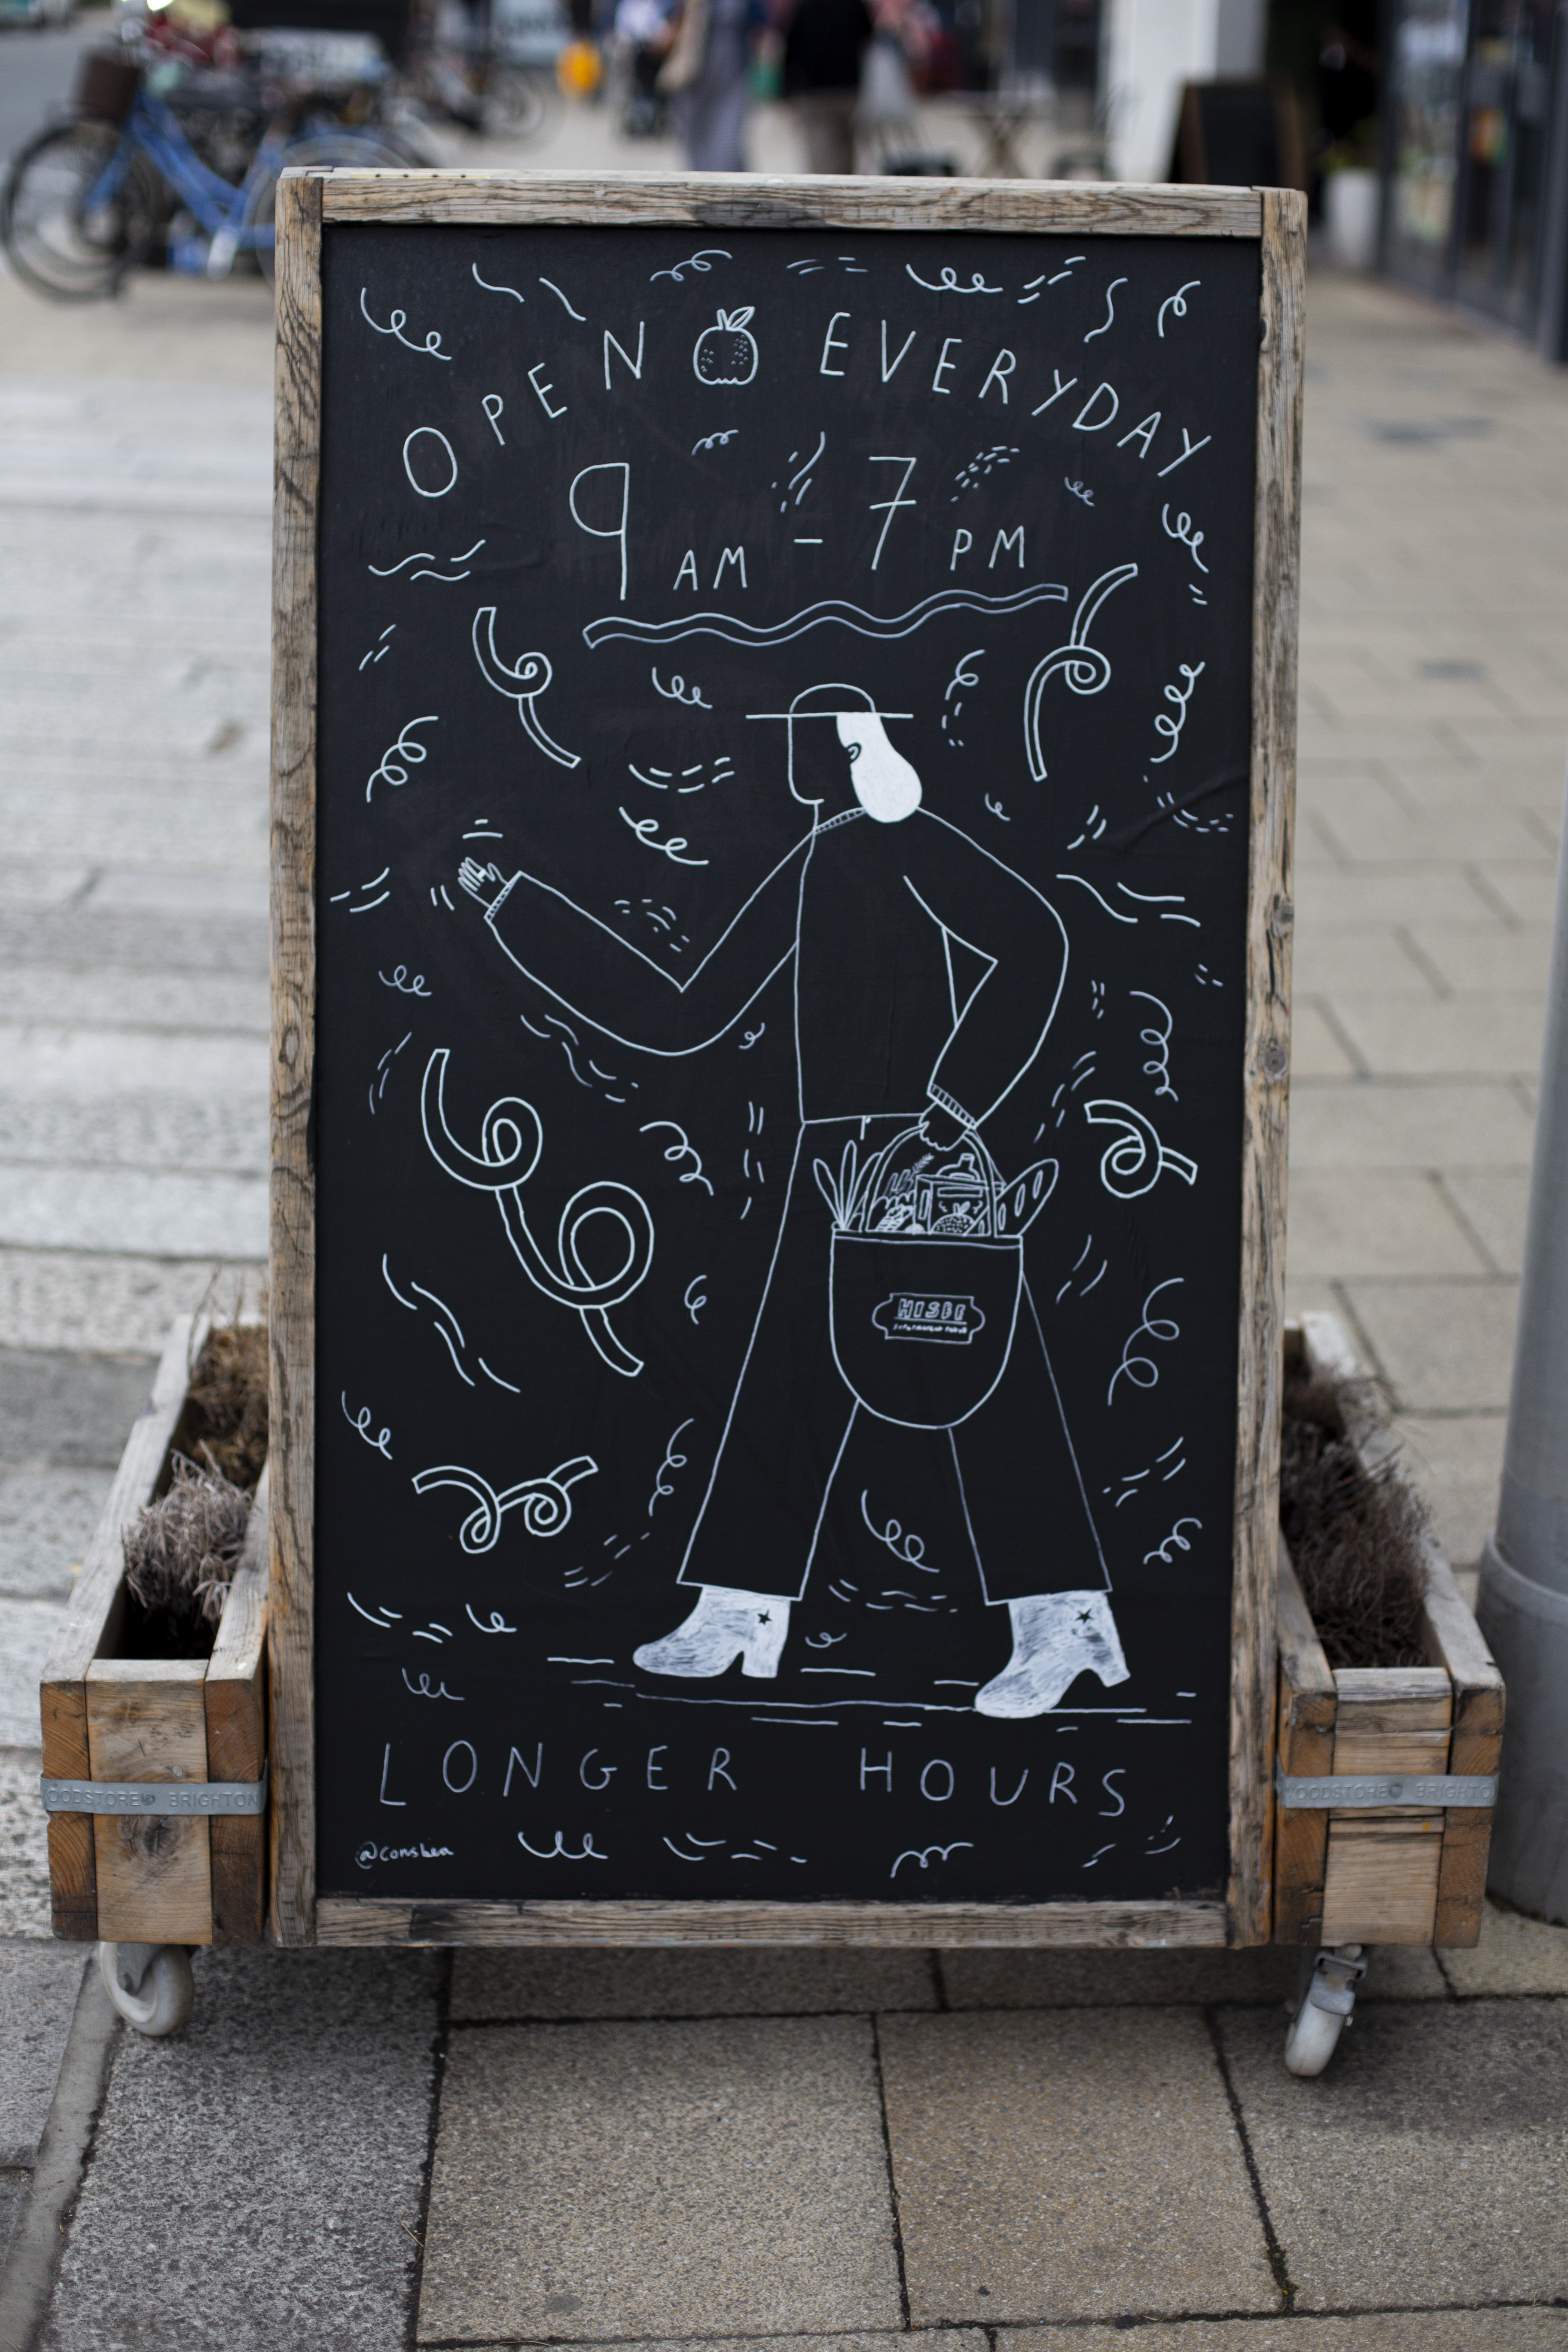 OPEN EVERYDAY
9 AM - 7 PM
HISBE
LONGER HOURS
OODSTORE BRIGHTON
OODSTORE BRIGHTO